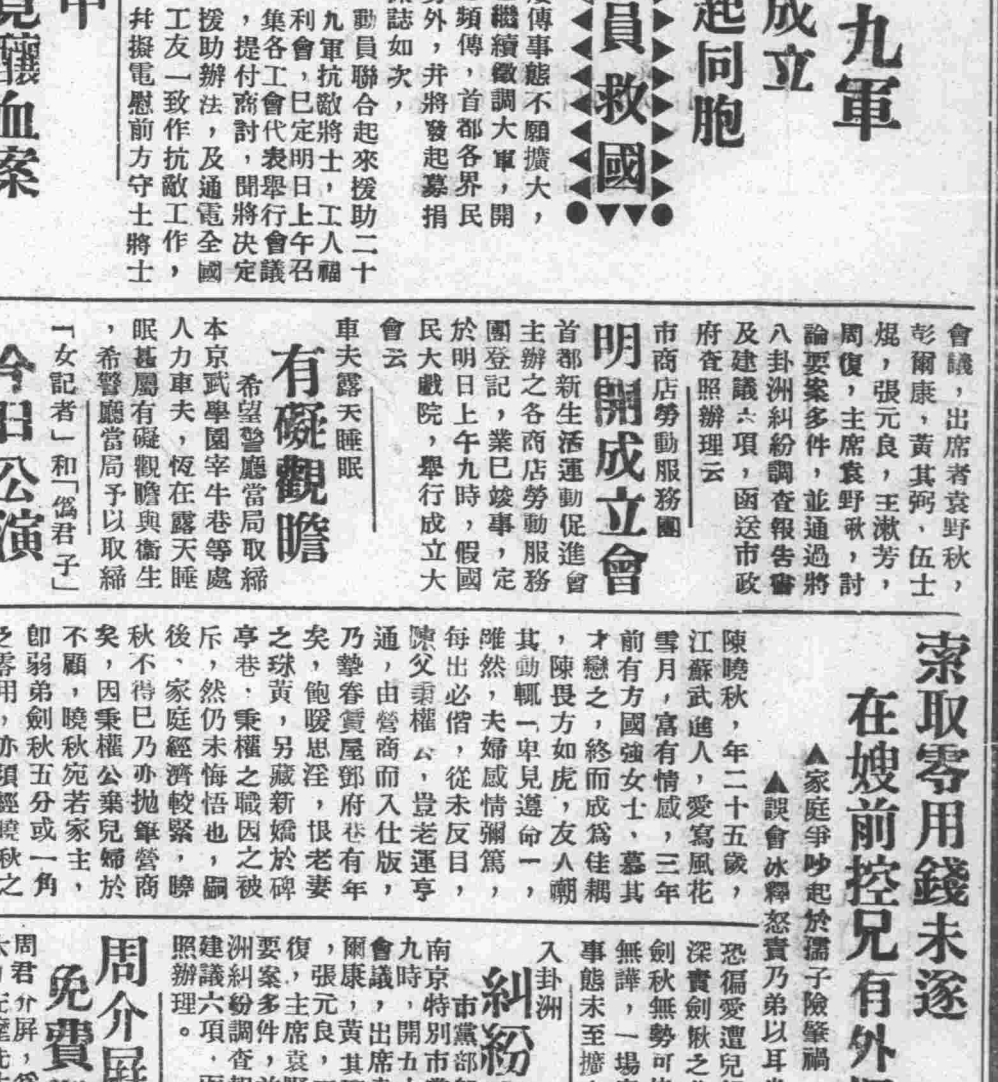 九軍
成立
起同胞
員救國
傳事態不願擴大，
繼續徵調大軍，開
頻傳，首都各界民
外，并將發起募捐
誌如次，
動員聯合起來援助二十
九軍抗敵將士，工人福
利會，已定明日上午召
集各工會代表舉行會議
，提付商討，聞將決定
援助辦法，及通電全國
工友一致作抗敵工作，
并擬電慰前方守士將士
釀血案
會議，出席者袁野秋，
彭爾康，黃其弼，伍士
焜，張元良，王漱芳，
周復，主席袁野秋，討
論要案多件，並通過將
八卦洲糾紛調查報告書
及建議六項，函送市政
府查照辦理云
市商店勞動服務團
明開成立會
首都新生活運動促進會
主辦之各商店勞動服務
團登記，業已竣事，定
於明日上午九時，假國
民大戲院，舉行成立大
會云
車夫露天睡眠
有礙觀瞻
希望警廳當局取締
本京武學園宰牛巷等處
人力車夫，恆在露天睡
眠甚屬有礙觀瞻與衞生
，希警廳當局予以取締
「女記者」和「僞君子」
今日公演
索取零用錢未遂
在嫂前控兄有外
▲家庭爭吵起於孺子險肇禍
▲誤會冰釋怒責乃弟以耳
陳曉秋，年二十五歲，
江蘇武進人，愛寫風花
雪月，富有情感，三年
前有方國強女士，慕其
才戀之，終而成爲佳耦
，陳畏方如虎，友人嘲
其動輒一卑見遵命一，
雖然，夫婦感情彌篤，
每出必偕，從未反目，
陳父秉權公，豈老運亨
通，由營商而入仕版，
乃摯眷賃屋鄧府巷有年
矣，飽暖思淫，恨老妻
之珠黃，另藏新嬌於碑
亭巷，秉權之職因之被
斥，然仍未悔悟也，嗣
後，家庭經濟較緊，曉
秋不得已乃亦拋筆營商
矣，因秉權公棄兒婦於
不顧，曉秋宛若家主，
卽弱弟劍秋五分或一角
之零用，亦須經曉秋之
恐徧愛遭兒
深責劍秋之
劍秋無勢可
無譁，一場
事態未至擴
入卦洲
糾紛
市黨部
南京特別市
九時，開五
會議，出席
爾康，黃其
，張元良，
復，主席袁
要案多件，
洲糾紛調查
建議六項，函
照辦理。
周介屏
免費
周君介屏，爲